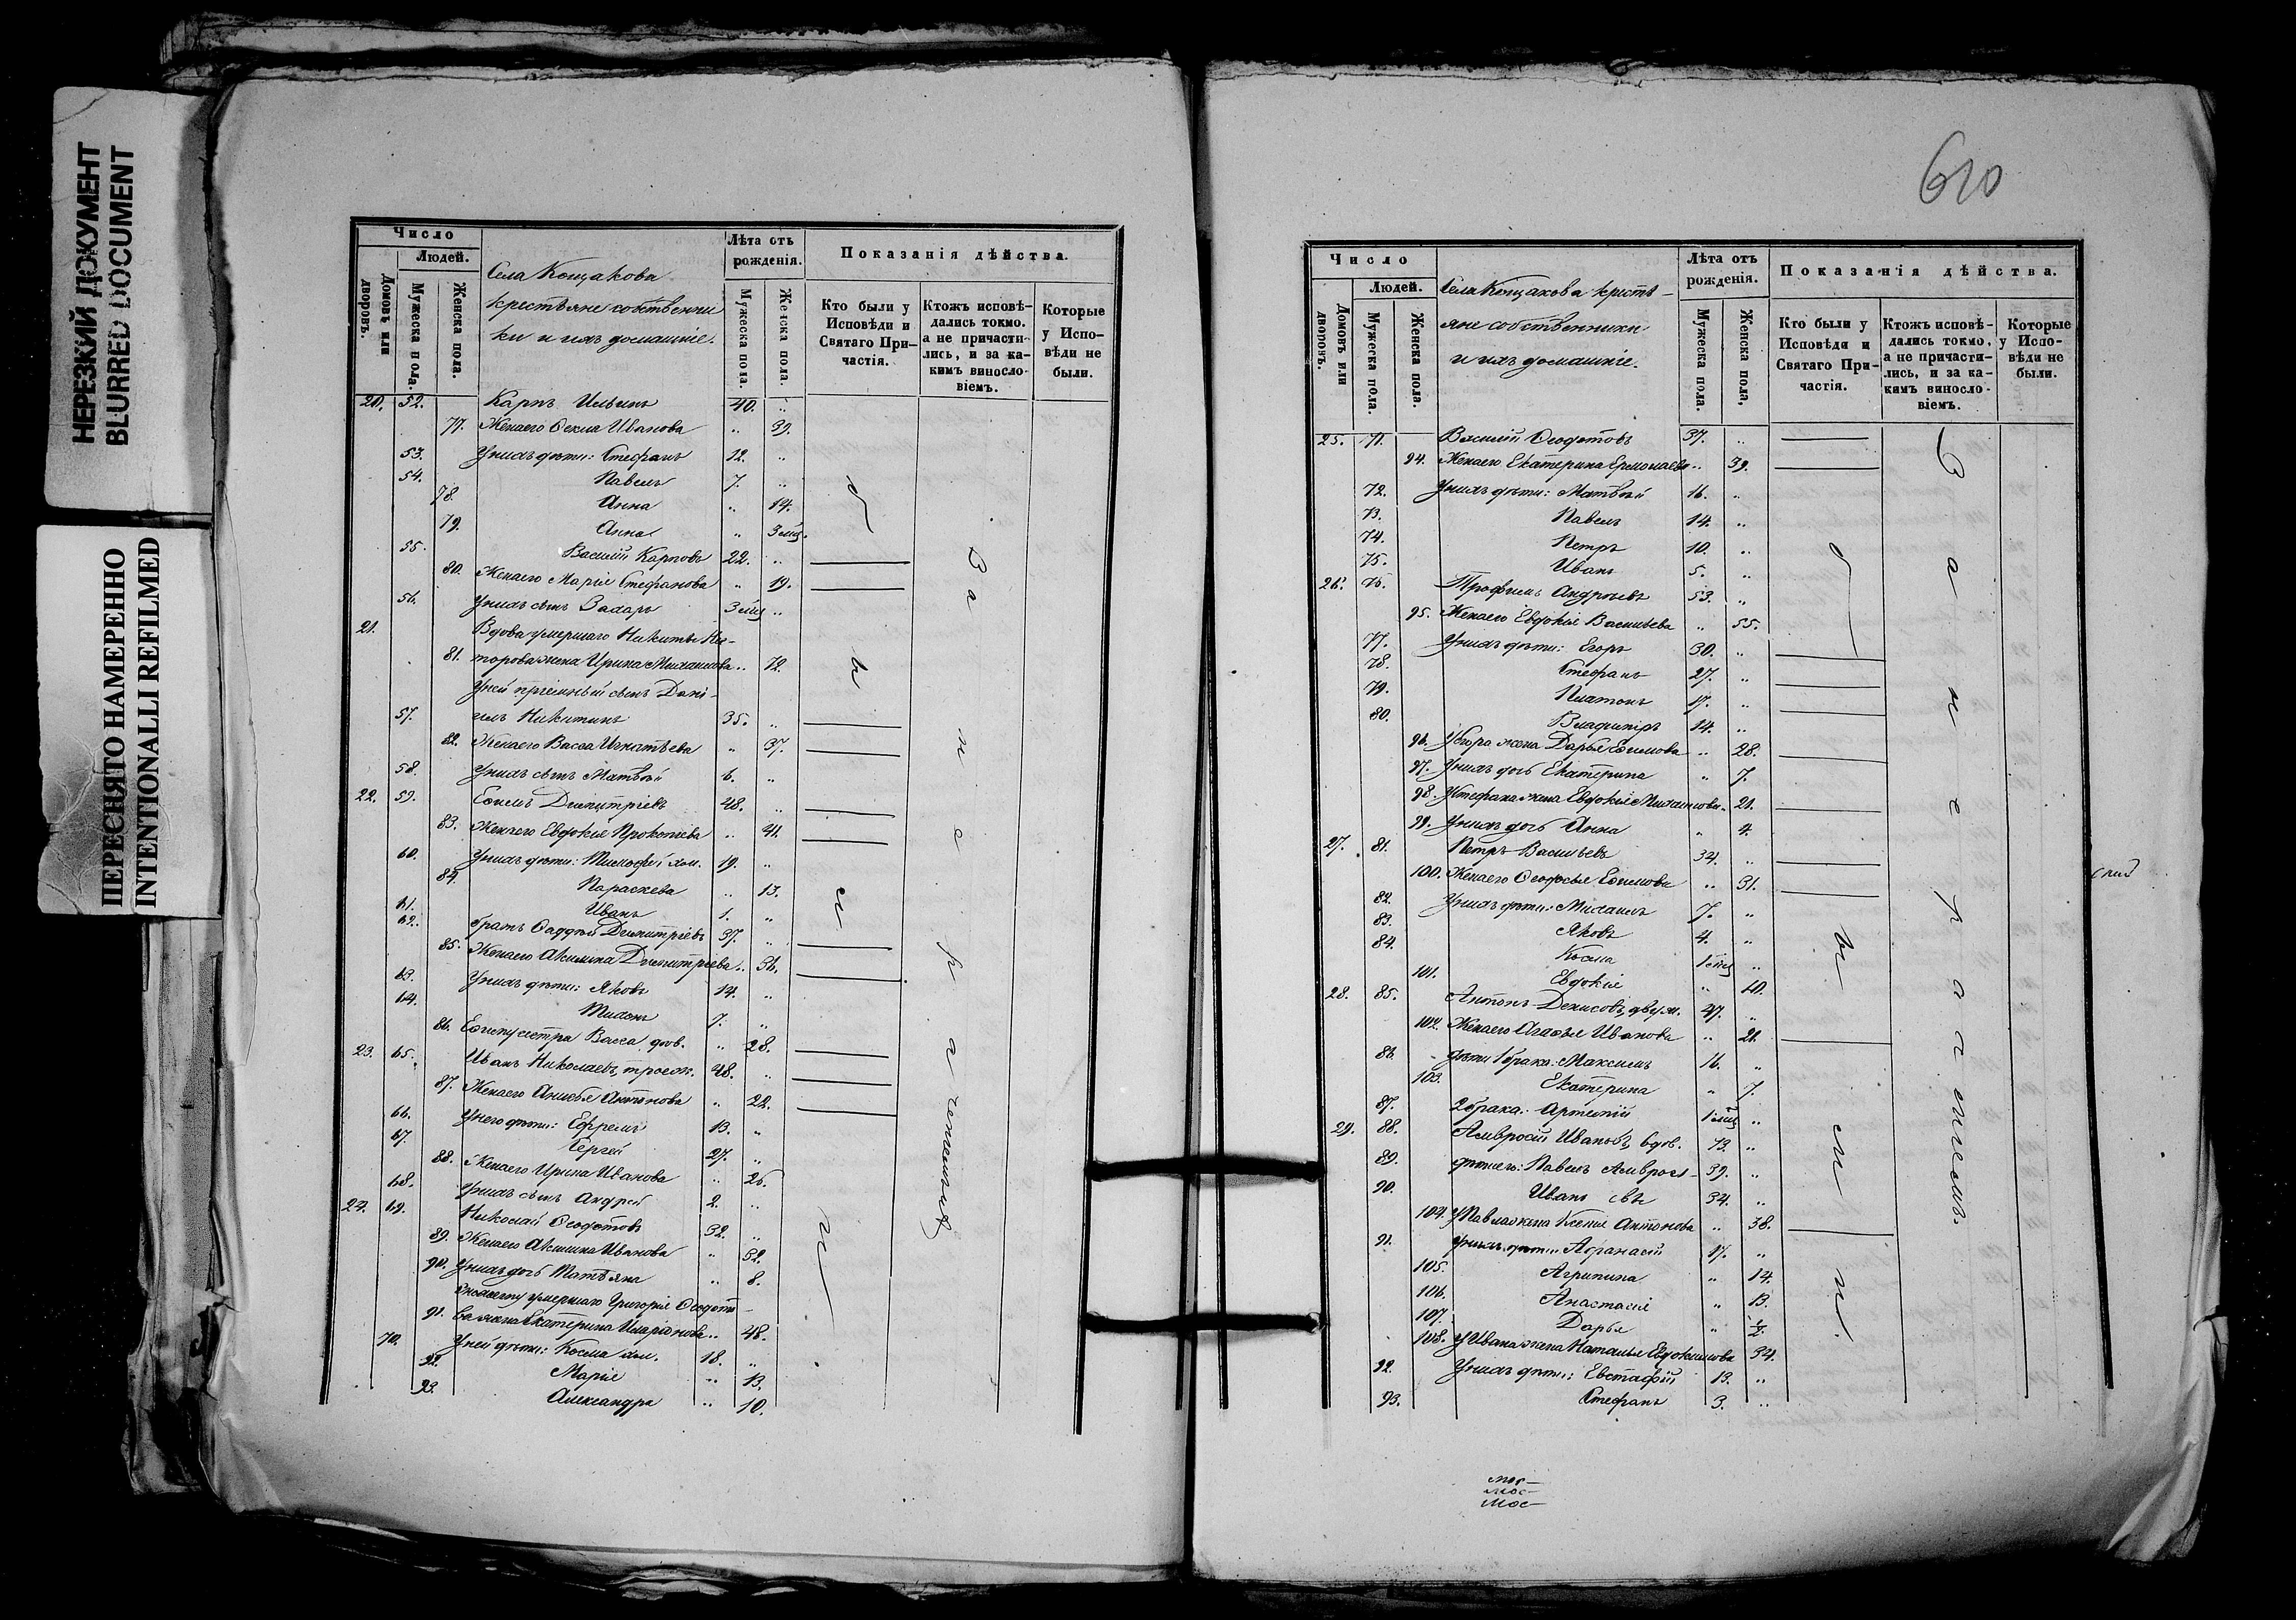 НЕРЕЗКИЙ ДОКУМЕНТ
BLURRED DOCUMENT
ПЕРЕСНЯТО НАМЕРЕННО
INTENTIONALLI REFILMED
Число
Людей.
Домовъ или дворовъ.
Мужеска пола.
Женска пола.
Села Кощакова
крестьяне собственни
ки и ихъ домашніе.
Лѣта отъ рожденія.
Мужеска пола.
Женска пола.
Показанія дѣйства.
Кто были у Исповѣди и Святаго Причастія.
Ктожъ исповѣдались токмо, а не причастились, и за какимъ винословіемъ.
Которые у Исповѣди не были.
20. 52. Карпъ Ильинъ 40. „
77. Жена его Фекла Иванова „ 39.
53. У нихъ дѣти: Стефанъ 12. „
54. Павелъ 7. „
78. Анна „ 14.
79. Анна „ 3 мѣс.
55. Василій Карповъ 22. „
80. Жена его Марія Стефанова „ 19.
56. У нихъ сынъ Захаръ 3 мѣс „
21. Вдова умершаго Никиты
81. жена Ирина Михаилова „ 72.
У ней пріемный сынъ Дані-
57. илъ Никитинъ 35. „
82. Жена его Васса Игнатьева „ 37.
58. У нихъ сынъ Матвѣй 6. „
22. 59. Ефимъ Димитріевъ 48. „
83. Жена его Евдокія Прокопіева „ 41.
60. У нихъ дѣти: Тимофей хол. 19. „
84. Параскева „ 13.
61. Иванъ 1. „
62. братъ Фаддей Димитріевъ 37. „
85. Жена его Акилина Димитріева „ 36.
63. У нихъ дѣти: Яковъ 14. „
64. Тихонъ 7. „
86. Ефиму сестра Васса дѣв. „ 28.
23. 65. Иванъ Николаевъ, троеж. 48. „
87. Жена его Анисья Антонова „ 22.
66. У него дѣти: Ефремъ 13. „
67. Сергей 27. „
88. Жена его Ирина Иванова „ 26.
68. У нихъ сынъ Андрей 2. „
24. 69. Николай Феодотовъ 32. „
89. Жена его Акилина Иванова „ 32.
90. У нихъ дочь Татьяна „ 8.
умершаго Григорія Феодото-
91. ва жена Екатерина Иларіонова „ 48.
70. У ней дѣти: Косма хол. 18. „
92. Марія „ 13.
93. Александра „ 10.
610
Число
Людей.
Домовъ или дворовъ.
Мужеска пола.
Женска пола.
Села Кощакова кресть-
яне собственники
и ихъ домашніе.
Лѣта отъ рожденія.
Мужеска пола.
Женска пола,
Показанія дѣйства.
Кто были у Исповѣди и Святаго Причастія.
Ктожъ исповѣдались токмо, а не причастились, и за какимъ винословіемъ.
Которые у Исповѣди не были.
25. 71. Василій Феодотовъ 37. „
94. Жена его Екатерина Ермолаева „ 39.
72. У нихъ дѣти: Матвѣй 16. „
73. Павелъ 14. „
74. Петръ 10. „
75. Иванъ 5. „
26. 76. Трофимъ Андреевъ 53. „
95. Жена его Евдокія Васильева „ 55.
77. У нихъ дѣти: Егоръ 30. „
78. Стефанъ 27. „
79. Платонъ 17. „
80. Владиміръ 14. „
96. У Егора жена Дарья Ефимова „ 28.
97. У нихъ дочь Екатерина „ 7.
98. У Стефана жена Евдокія Михаилова „ 21.
99. У нихъ дочь Анна „ 4.
27. 81. Петръ Васильевъ 34. „
100. Жена его Федосья Ефимова „ 31.
82. У нихъ дѣти: Михаилъ 7. „
83. Яковъ 4. „
84. Косма 1 мѣс „
101. Евдокія „ 10.
28. 85. Антонъ Денисовъ, двуж. 47. „
102. Жена его Агафья Иванова „ 26.
86. дѣти 1 брака: Максимъ 16. „
103. Екатерина „ 7.
87. 2 брака: Артемій 1 мѣс „
29. 88. Амвросій Ивановъ, вдов. 73. „
89. дѣти его: Павелъ Амврос- 39. „
90. Иванъ 34. „
104. У Павла жена Ксенія Антонова „ 38.
91. У нихъ дѣти: Афанасій 17. „
105. Агрипина „ 14.
106. Анастасія „ 13.
107. Дарья „ ½.
108. У Ивана жена Наталья Евдокимова 34.
92. У нихъ дѣти: Евстафій 13. „
93. Стефанъ 3. „